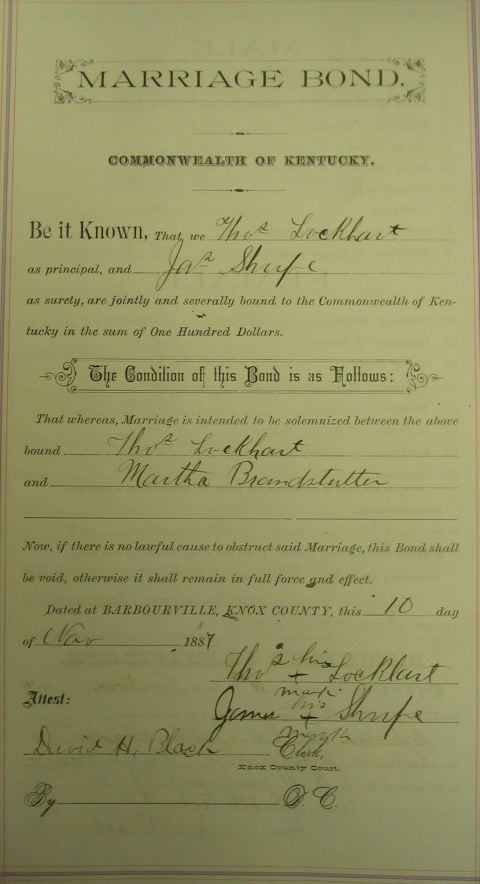 MARRIAGE BOND.
COMMONWEALTH OF KENTUCKY.
Be it Known, That we Thos Lockhart
as principal, and Jas Shupe
as surety, are jointly and severally bound to the Commonwealth of Ken-
tucky in the sum of One Hundred Dollars.
The Condition of this Bond is as Follows:
That whereas, Marriage is intended to be solemnized between the above
bound Thos Lockhart
and Martha Brandstutter
Now, if there is no lawful cause to obstruct said Marriage, this Bond shall
be void, otherwise it shall remain in full force and effect.
Dated at BARBOURVILLE, KNOX COUNTY, this 10 day
of Nov 1887
Thos his + mark Lockhart
Attest:
James his + mark Shupe
David H. Black Clerk,
Knox County Court.
By D. C.